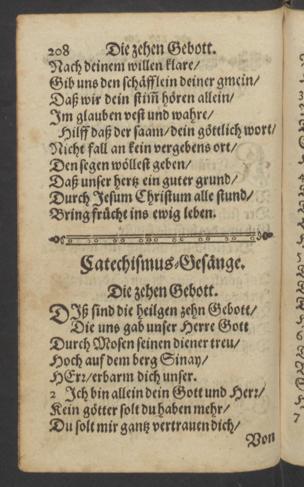 208 Die zehen Gebott.
Nach deinem willen klare/
Gib uns den schäfflein deiner gmein/
Daß wir dein stim̄ hören allein/
Im glauben vest und wahre/
Hilff daß der saam/dein göttlich wort/
Nicht fall an kein vergebens ort/
Den segen wöllest geben/
Daß unser hertz ein guter grund/
Durch Jesum Christum alle stund/
Bring frücht ins ewig leben.
Catechismus-Gesänge.
Die zehen Gebott.
DIß sind die heilgen zehn Gebott/
Die uns gab unser Herre Gott
Durch Mosen seinen diener treu/
Hoch auf dem berg Sinay/
HErr/erbarm dich unser.
2 Ich bin allein dein Gott und Herr/
Kein götter solt du haben mehr/
Du solt mir gantz vertrauen dich/
Von